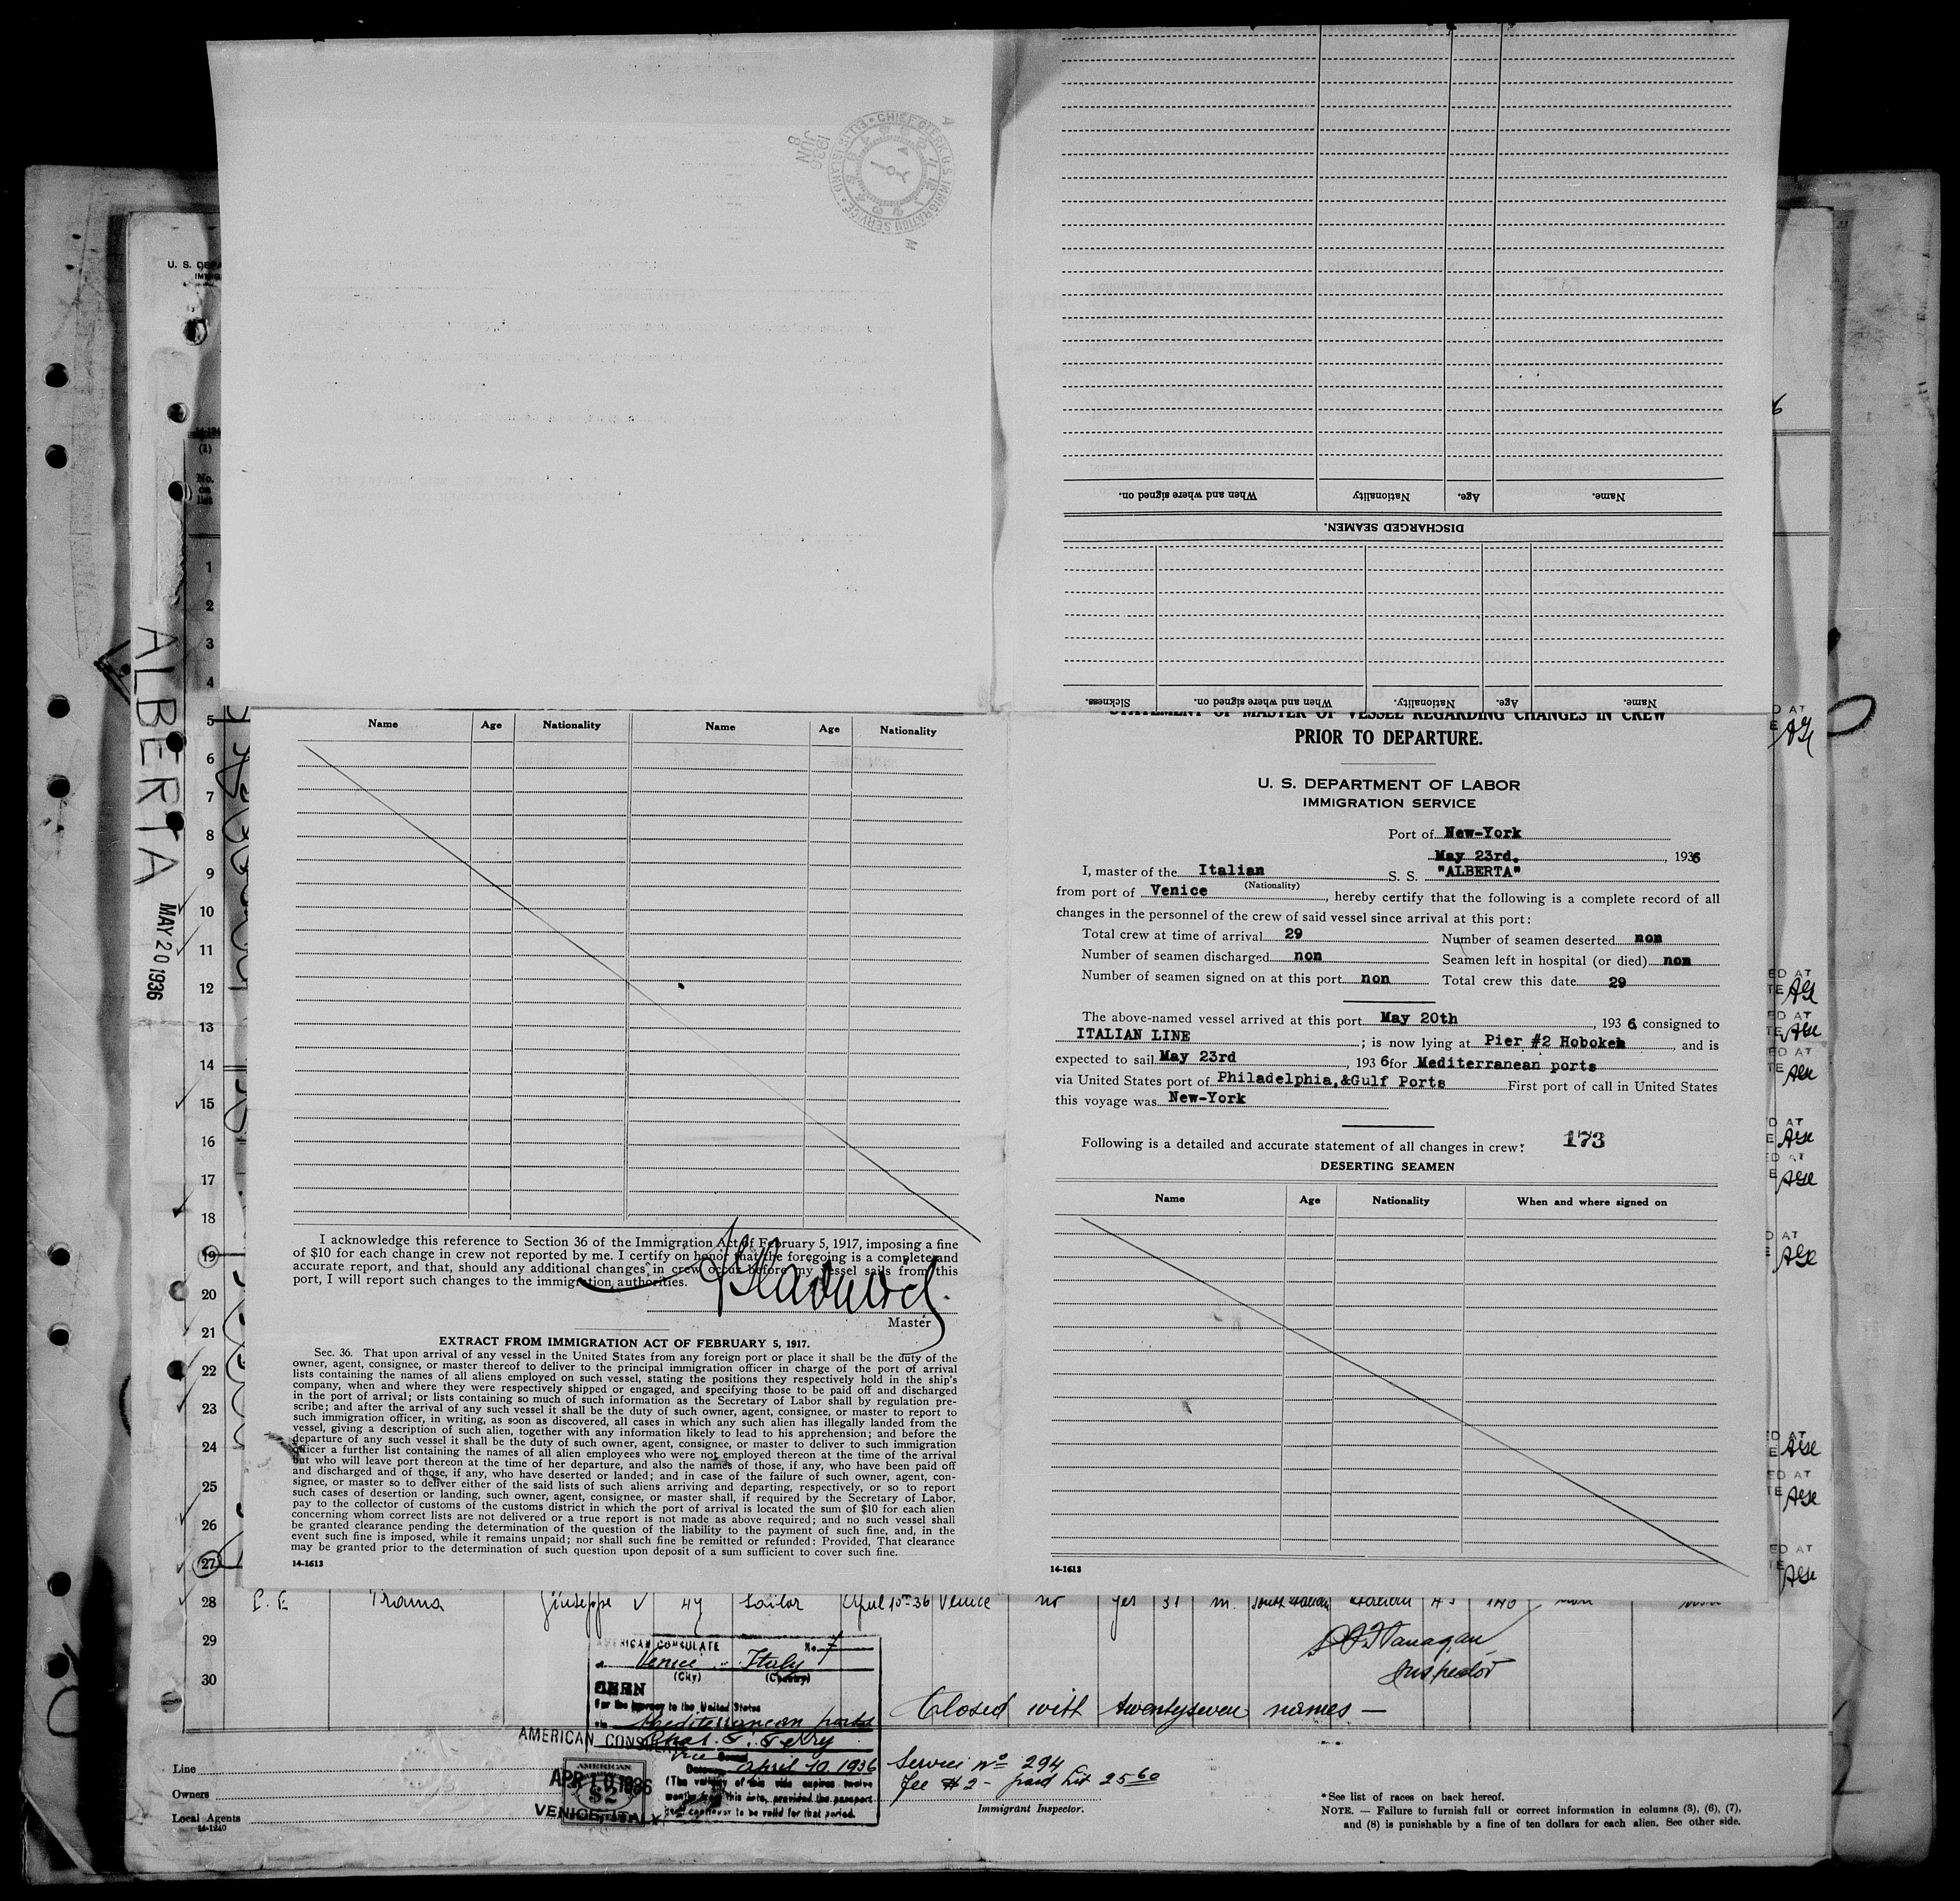 CHIEF CLERK, U. S. IMMIGRATION SERVICE
ELLIS ISLAND
1936 JUN 8
A
M
Name.
Age.
Nationality
When and where signed on.
DISCHARGED SEAMEN.
Name.
Age.
Nationality.
When and where signed on.
Sickness.
U. S. DEPA
IMMIG
(1)
No. on list
1
2
3
4
5
6
7
8
9
10
11
12
13
14
15
16
17
18
19
20
21
22
23
24
25
26
27
ALBERTA
MAY 20 1936
Name Age Nationality Name Age Nationality
I acknowledge this reference to Section 36 of the Immigration Act of February 5, 1917, imposing a fine
of $10 for each change in crew not reported by me. I certify on honor that the foregoing is a complete and
accurate report, and that, should any additional changes in crew occur before my vessel sails from this
port, I will report such changes to the immigration authorities.
Master
EXTRACT FROM IMMIGRATION ACT OF FEBRUARY 5, 1917.
Sec. 36. That upon arrival of any vessel in the United States from any foreign port or place it shall be the duty of the
owner, agent, consignee, or master thereof to deliver to the principal immigration officer in charge of the port of arrival
lists containing the names of all aliens employed on such vessel, stating the positions they respectively hold in the ship's
company, when and where they were respectively shipped or engaged, and specifying those to be paid off and discharged
in the port of arrival; or lists containing so much of such information as the Secretary of Labor shall by regulation pre-
scribe; and after the arrival of any such vessel it shall be the duty of such owner, agent, consignee, or master to report to
such immigration officer, in writing, as soon as discovered, all cases in which any such alien has illegally landed from the
vessel, giving a description of such alien, together with any information likely to lead to his apprehension; and before the
departure of any such vessel it shall be the duty of such owner, agent, consignee, or master to deliver to such immigration
officer a further list containing the names of all alien employees who were not employed thereon at the time of the arrival
but who will leave port thereon at the time of her departure, and also the names of those, if any, who have been paid off
and discharged and of those, if any, who have deserted or landed; and in case of the failure of such owner, agent, con-
signee, or master so to deliver either of the said lists of such aliens arriving and departing, respectively, or so to report
such cases of desertion or landing, such owner, agent, consignee, or master shall, if required by the Secretary of Labor,
pay to the collector of customs of the customs district in which the port of arrival is located the sum of $10 for each alien
concerning whom correct lists are not delivered or a true report is not made as above required; and no such vessel shall
be granted clearance pending the determination of the question of the liability to the payment of such fine, and, in the
event such fine is imposed, while it remains unpaid; nor shall such fine be remitted or refunded: Provided, That clearance
may be granted prior to the determination of such question upon deposit of a sum sufficient to cover such fine.
14-1613
STATEMENT OF MASTER OF VESSEL REGARDING CHANGES IN CREW
PRIOR TO DEPARTURE.
U. S. DEPARTMENT OF LABOR
IMMIGRATION SERVICE
Port of New-York
May 23rd. , 1936
I, master of the Italian S. S. "ALBERTA"
(Nationality)
from port of Venice , hereby certify that the following is a complete record of all
changes in the personnel of the crew of said vessel since arrival at this port:
Total crew at time of arrival 29 Number of seamen deserted non
Number of seamen discharged non Seamen left in hospital (or died) non
Number of seamen signed on at this port non Total crew this date 29
The above-named vessel arrived at this port May 20th , 193 6 consigned to
ITALIAN LINE ; is now lying at Pier #2 Hoboken , and is
expected to sail May 23rd , 193 6 for Mediterranean ports
via United States port of Philadelphia,&Gulf Ports First port of call in United States
this voyage was New-York
Following is a detailed and accurate statement of all changes in crew: 173
DESERTING SEAMEN
Name Age Nationality When and where signed on
14-1613
28 P. E Trama Giuseppe 47 Sailor April 10th 36 Venice no yes 31 m. South Italian Italian
29
30
Inspector
Closed with twentyseven names —
AMERICAN CONSULATE No. 7
at Venice Italy
(City) (Country)
SEEN
For the journey to the United States
via Mediterranean ports
Chas. T. Terry
Vice Consul
Date April 10. 1936
(The validity of this visa expires twelve
months from this date, provided the passport
continues to be valid for that period.
AMERICAN CONSULATE
APR 10 1936
VENICE, ITALY
AMERICAN
$2
Service no 294
Fee $2 - paid Lit 25.60
Immigrant Inspector.
Line
Owners
Local Agents
14-1240
*See list of races on back hereof.
NOTE. — Failure to furnish full or correct information in columns (3), (6), (7),
and (8) is punishable by a fine of ten dollars for each alien. See other side.